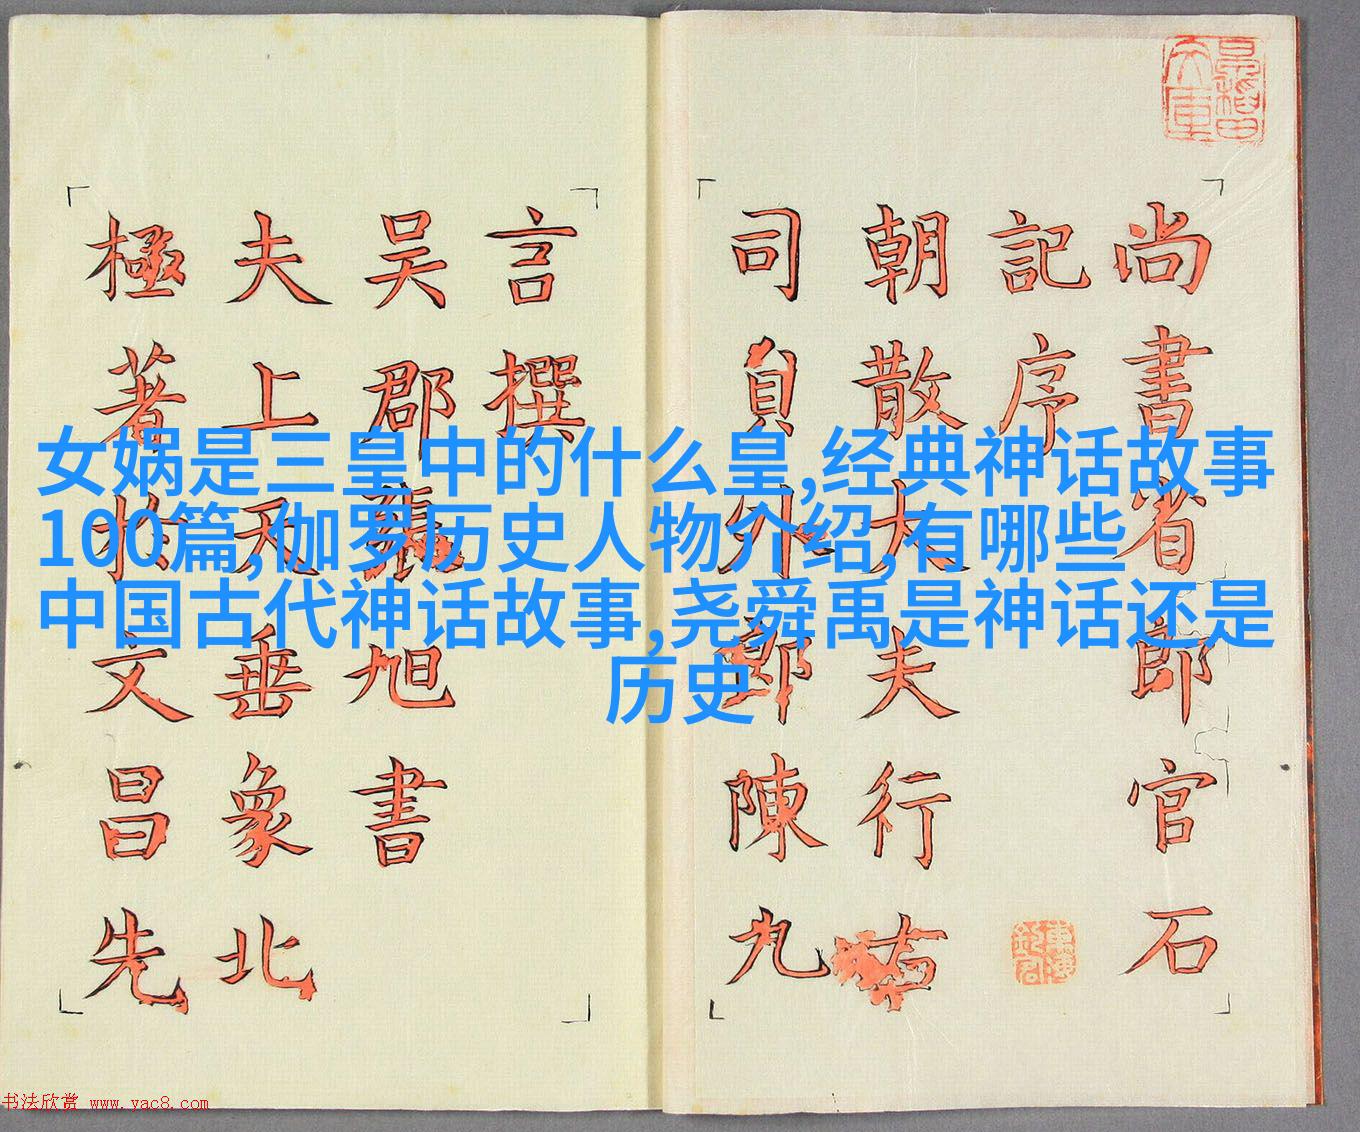 尚書省郎官石
記序
朝散大夫行右
司員外郎陳九
言撰
吴郡張旭書
夫上天垂象北
極著於文昌先
女娲是三皇中的什么皇,经典神话故事
100篇,伽罗历史人物介绍,有哪些
中国古代神话故事,尧舜禹是神话还是
历史
书法欣赏 www.yac8.com